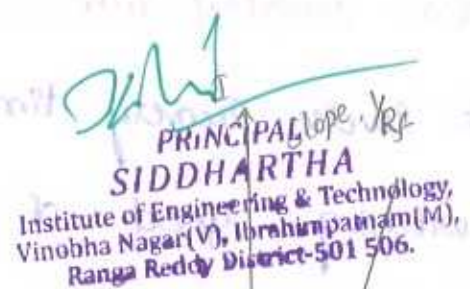 I
PRINCIPAL slope. 1/RF
SIDDHARTHA
Institute of Engineering & Technology,
Vinobha Nagar(V), Ibrahimpatnam(M),
Ranga Reddy District-501 506.